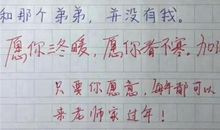 和那个弟弟，并没有我。
愿你三冬暖，愿你春不寒。加油
只要你愿意，每年都可以
来老师家过年！